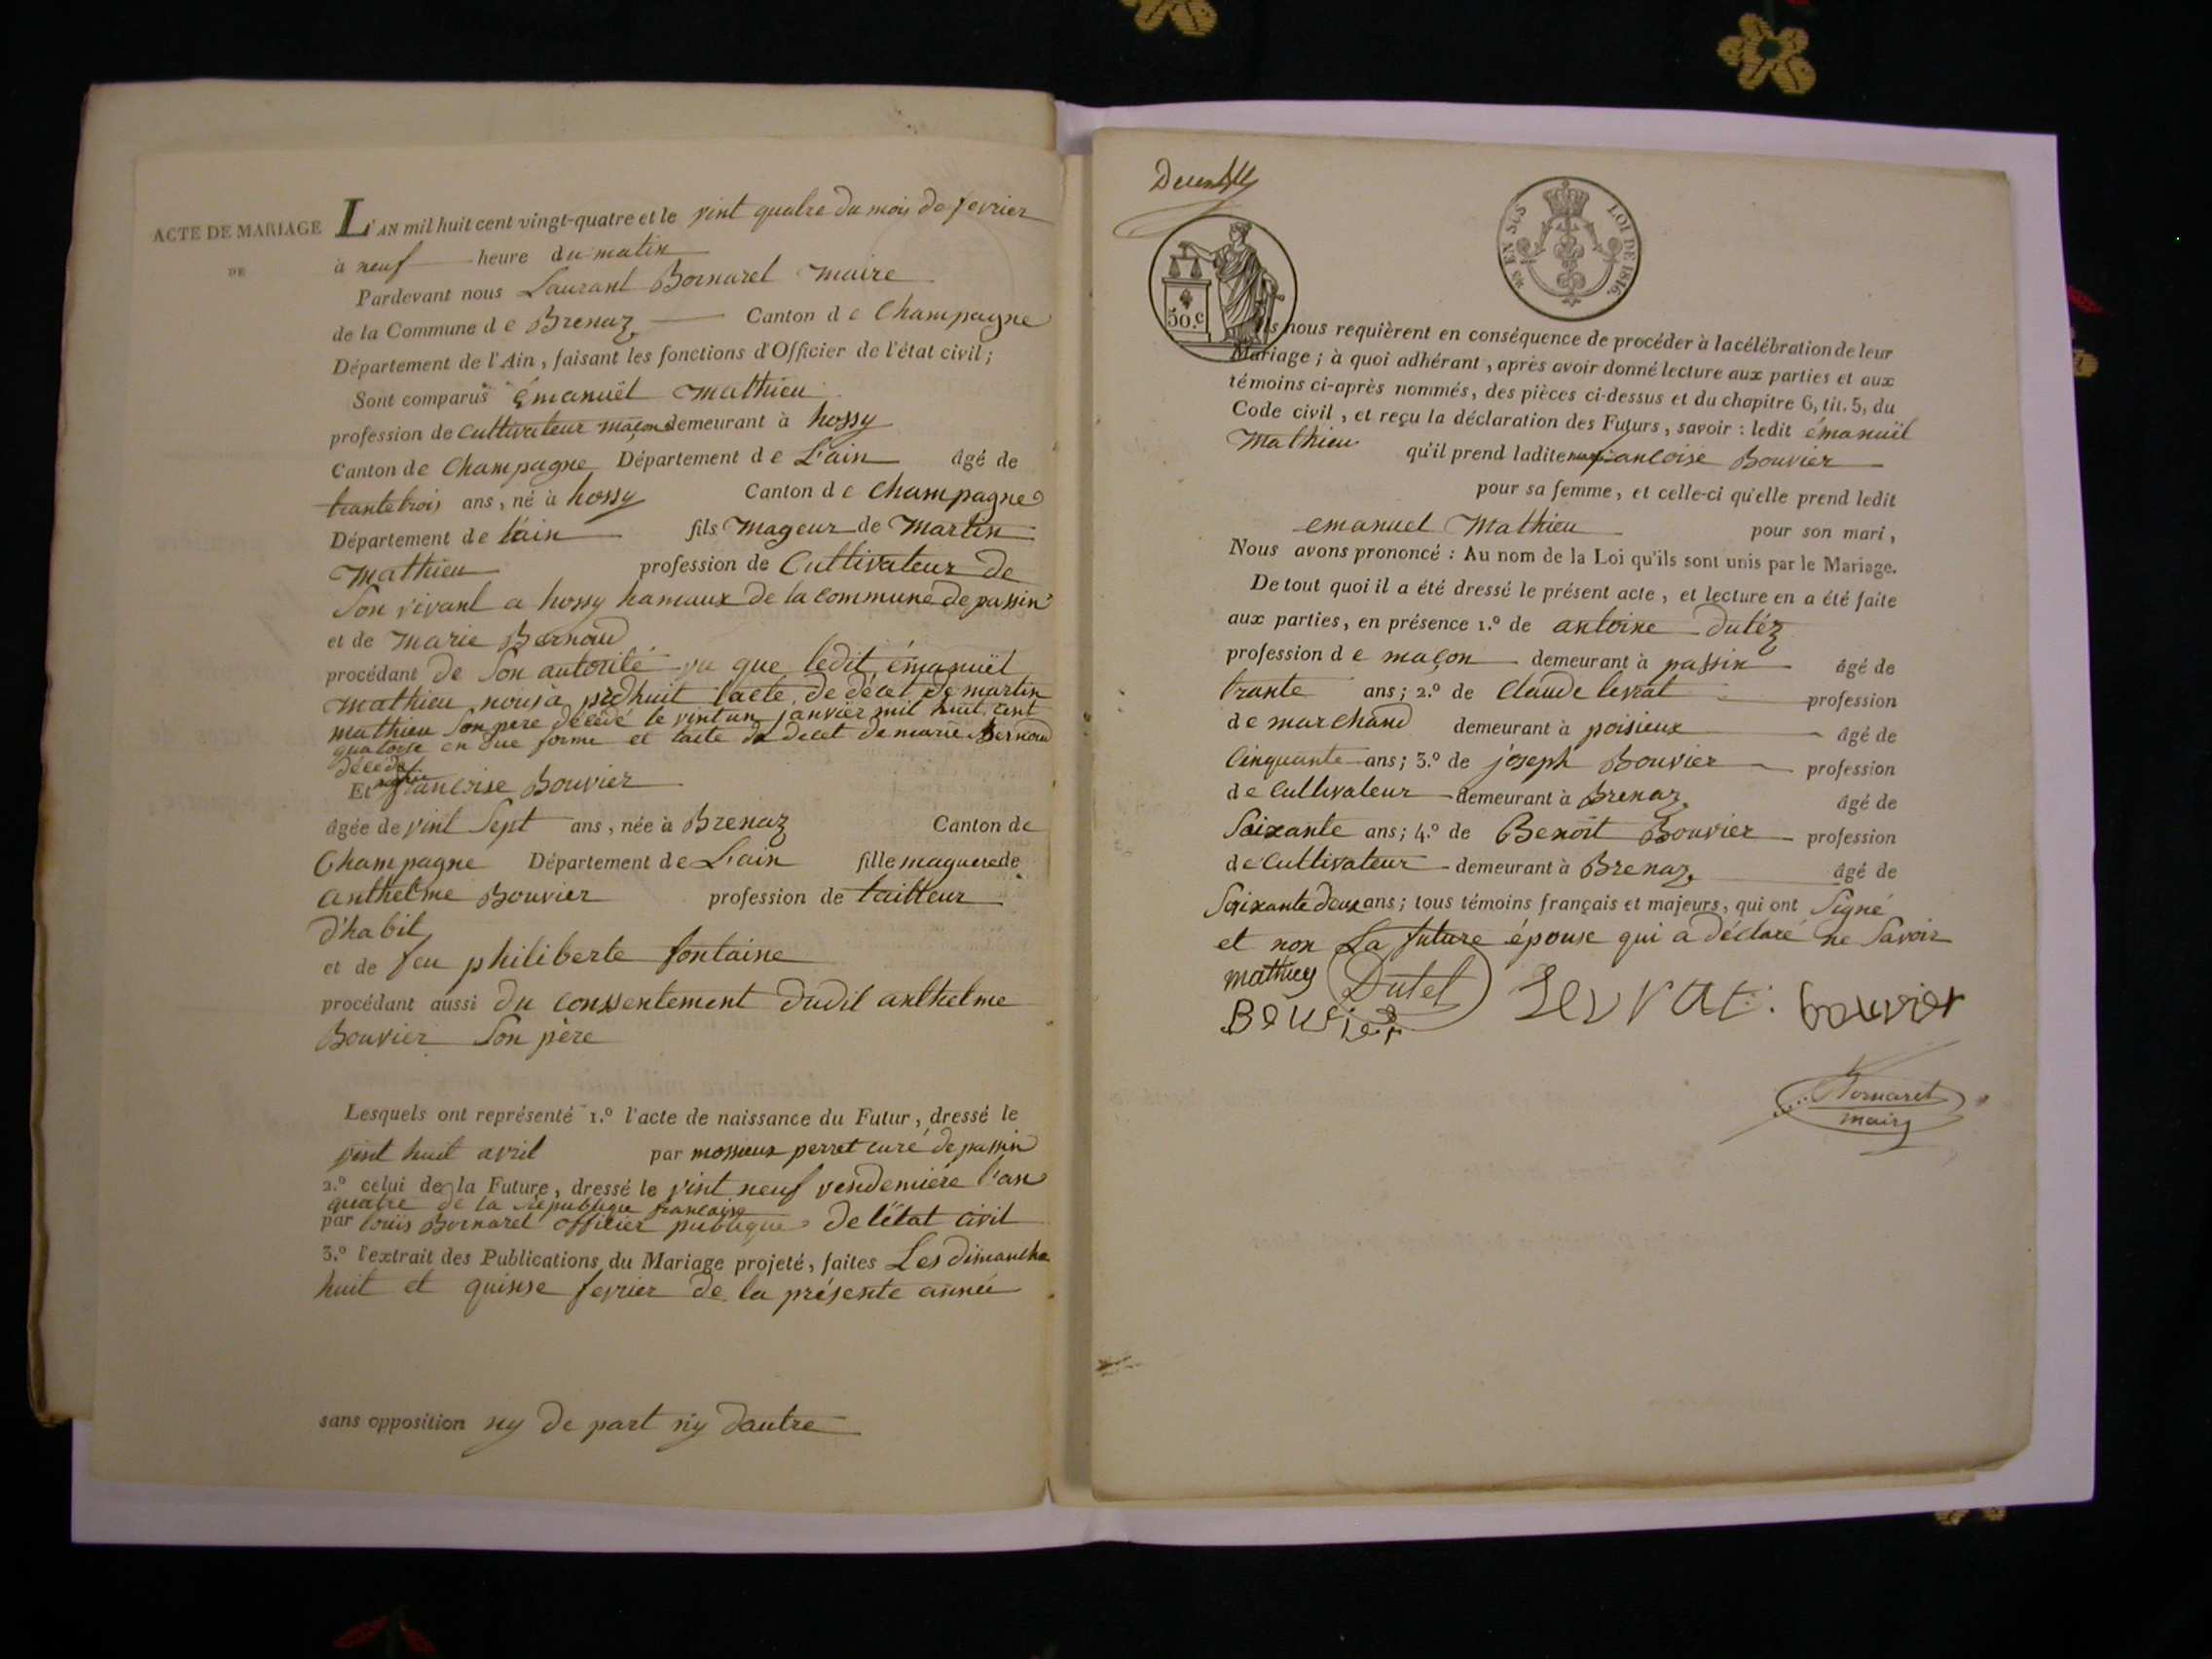 ACTE DE MARIAGE
DE
L'AN mil huit cent vingt-quatre et le vint quatre du mois de fevrier
à neuf heure du matin
Pardevant nous Laurant Bornarel maire
de la Commune de Brenaz Canton de Champagne
Département de l'Ain, faisant les fonctions d'Officier de l'état civil;
Sont comparus émanuël mathieu
profession de cultivateur maçon demeurant à hossy
Canton de Champagne Département de L'ain âgé de
trante trois ans, né à hossy Canton de Champagne
Département de l'ain fils mageur de martin
mathieu profession de Cultivateur de
Son vivant a hossy hamaux de la commune de passin
et de marie Bernoud
procédant de Son autorité vu que ledit émanuël
mathieu nous a produit l'acte de décet de martin
mathieu Son pere décédé le vint un janvier mil huit cent
quatorse en due forme et l'acte de decet de marie Bernoud
décédé
Et francoise Bouvier
âgée de vint Sept ans, née à Brenaz Canton de
Champagne Département de L'ain fille maguere de
anthelme Bouvier profession de tailleur
d'habit
et de feu philiberte fontaine
procédant aussi du consentement dudit anthelme
Bouvier Son père
Lesquels ont représenté 1.º l'acte de naissance du Futur, dressé le
vint huit avril par mossieux perret curé de passin
2.º celui de la Future, dressé le vint neuf vendemiére l'an
quatre de la république francaise
par louis Bornarel officier publique de l'état civil
3.º l'extrait des Publications du Mariage projeté, faites Les dimanche
huit et quinse fevrier de la présente année
sans opposition ny de part ny d'autre
50.c
EN SUS LOI DE 1816.
Ils nous requièrent en conséquence de procéder à la célébration de leur
Mariage; à quoi adhérant, après avoir donné lecture aux parties et aux
témoins ci-après nommés, des pièces ci-dessus et du chapitre 6, tit. 5, du
Code civil, et reçu la déclaration des Futurs, savoir: ledit émanuël
mathieu qu'il prend ladite francoise Bouvier
pour sa femme, et celle-ci qu'elle prend ledit
emanuel mathieu pour son mari,
Nous avons prononcé: Au nom de la Loi qu'ils sont unis par le Mariage.
De tout quoi il a été dressé le présent acte, et lecture en a été faite
aux parties, en présence 1.º de antoine dutéz
profession de maçon demeurant à passin âgé de
trante ans; 2.º de Claude levrat profession
de marchand demeurant à poisieux âgé de
Cinquante ans; 3.º de joseph Bouvier profession
de Cultivateur demeurant à Brenaz âgé de
Soixante ans; 4.º de Benoît Bouvier profession
de Cultivateur demeurant à Brenaz âgé de
Soixante deux ans; tous témoins français et majeurs, qui ont Signé
et non La future épouse qui a déclaré ne Savoir
mathieu Dutel Levrat Bouvier
Bouvier
Bornarel
maire